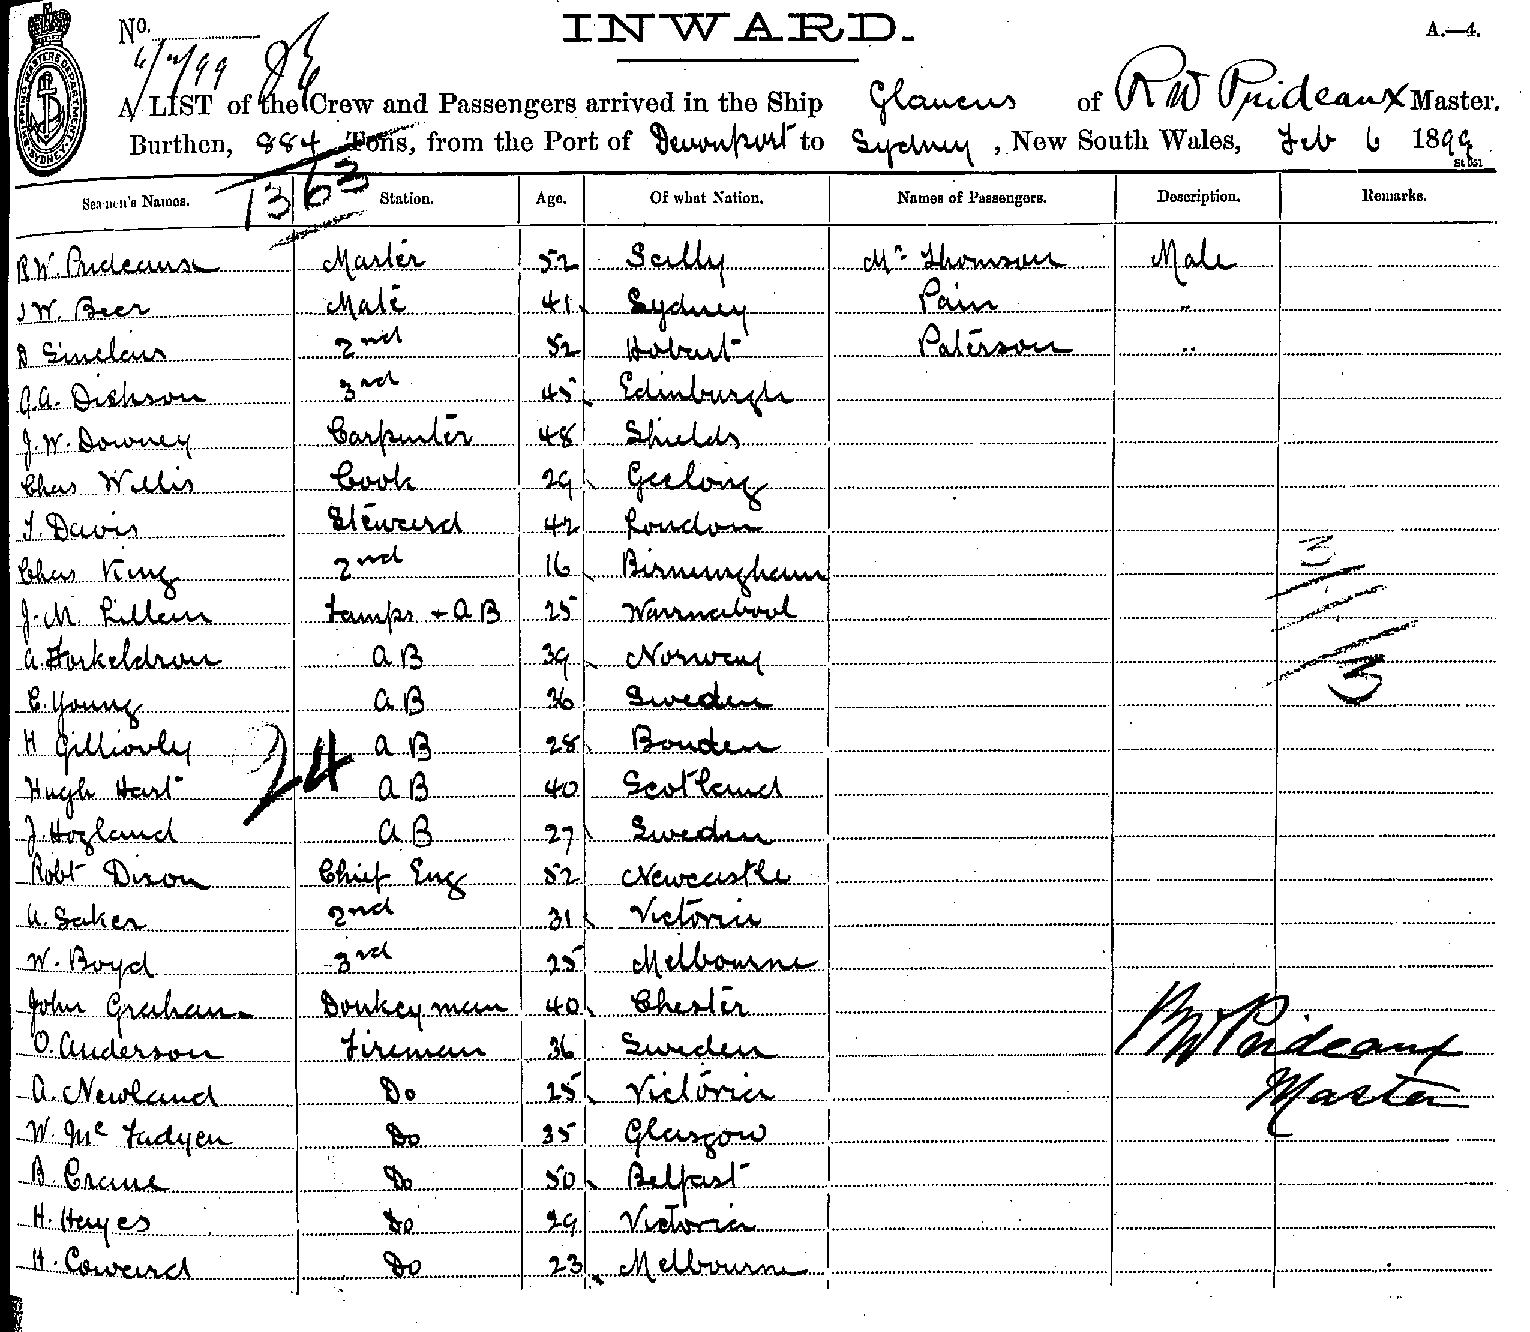 INWARD.
No.
A.—4.
6/2/99
A LIST of the Crew and Passengers arrived in the Ship Glaucus of R W Prideaux Master.
Burthen, 884 Tons, from the Port of Devonport to Sydney, New South Wales, Feb 6 1899
1363
Seamen's Names. Station. Age. Of what Nation. Names of Passengers. Description. Remarks.
R W. Prideaux Master 52 Scilly Mr Thomson Male
J W. Beer Mate 41 Sydney Pain "
D Sinclair 2nd 52 Hobart Paterson "
G.A. Dickson 3rd 45 Edinburgh
J. W. Downey Carpenter 48 Shields
Chas Willis Cook 29 Geelong
T. Davis Steward 42 London
Chas King 2nd 16 Birmingham
J. M. Lillein Lamps + A B 25 Warrnabool
A. Horkeldron A B 39 Norway
C. Young A B 36 Sweden
H A B 28 Bouden
Hugh Hart A B 40 Scotland
J. Hogland A B 27 Sweden
Robt Dixon Chief Eng 52 Newcastle
A. Saker 2nd 31 Victoria
W. Boyd 3rd 25 Melbourne
John Graham Donkeyman 40 Chester
O. Anderson Fireman 36 Sweden
A. Newland Do 25 Victoria
W. Mc Fadyen Do 35 Glasgow
B. Crane Do 50 Belfast
H. Hayes Do 29 Victoria
H. Coward Do 23 Melbourne
24
3
3
R W Prideaux
Master